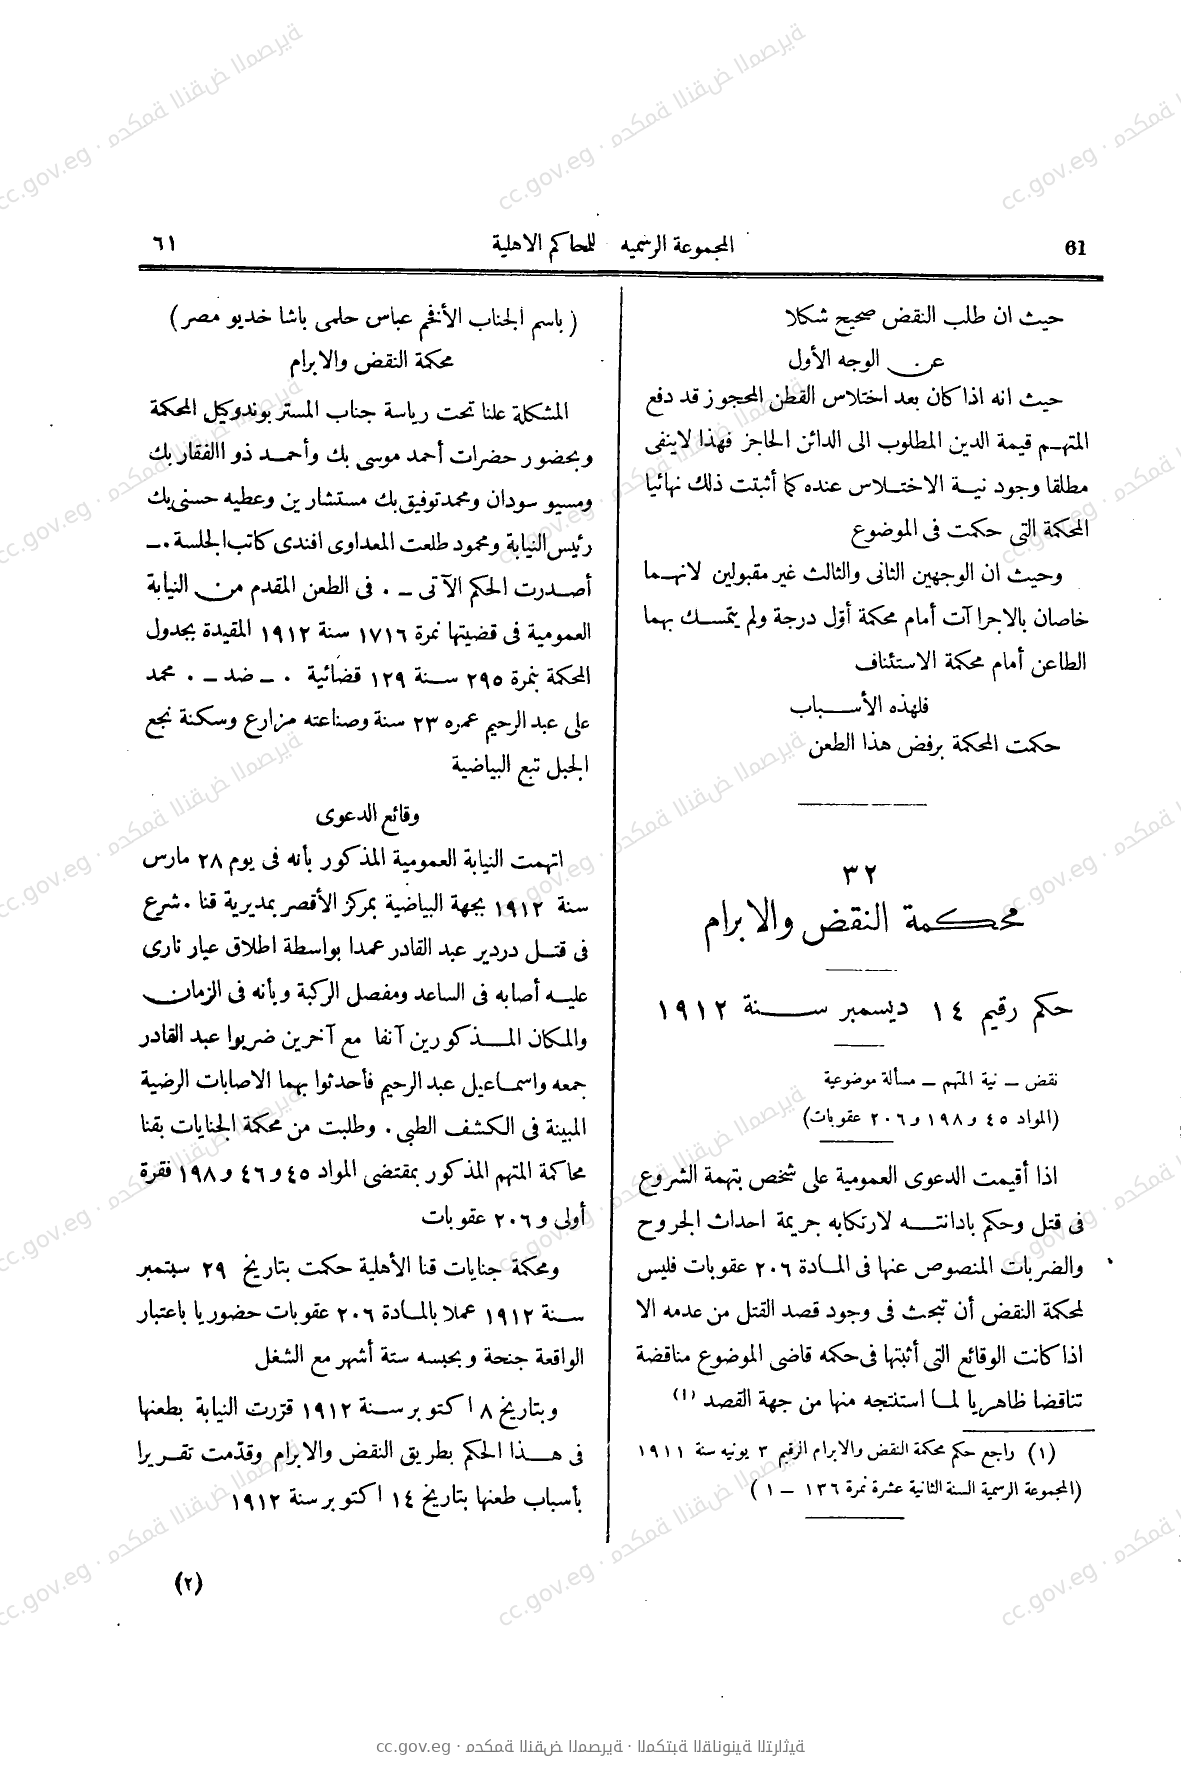 61
المجموعة الرسمية للمحاكم الاهلية
٦١
حيث ان طلب النقض صحيح شكلا
عن الوجه الأول
حيث انه اذا كان بعد اختلاس القطن المحجوز قد دفع
المتهم قيمة الدين المطلوب الى الدائن الحاجز فهذا لاينفى
مطلقا وجود نية الاختلاس عنده كما أثبتت ذلك نهائيا
المحكمة التى حكمت فى الموضوع
وحيث ان الوجهين الثانى والثالث غير مقبولين لانهما
خاصان بالاجراآت أمام محكمة أوّل درجة ولم يتمسك بهما
الطاعن أمام محكمة الاستئناف
فلهذه الأسباب
حكمت المحكمة برفض هذا الطعن
٣٢
محكمة النقض والابرام
حكم رقيم ١٤ ديسمبر سنة ١٩١٢
نقض – نية المتهم – مسألة موضوعية
(المواد ٤٥ و١٩٨ و٢٠٦ عقوبات)
اذا أقيمت الدعوى العمومية على شخص بتهمة الشروع
فى قتل وحكم بادانته لارتكابه جريمة احداث الجروح
والضربات المنصوص عنها فى المادة ٢٠٦ عقوبات فليس
لمحكمة النقض أن تبحث فى وجود قصد القتل من عدمه الا
اذا كانت الوقائع التى أثبتها فى حكمه قاضى الموضوع مناقضة
تناقضا ظاهريا لما استنتجه منها من جهة القصد (١)
(١) راجع حكم محكمة النقض والابرام الرقيم ٣ يونيه سنة ١٩١١
(المجموعة الرسمية السنة الثانية عشرة نمرة ١٣٦ – ١)
(باسم الجناب الأفخم عباس حلمى باشا خديو مصر)
محكمة النقض والابرام
المشكلة علنا تحت رياسة جناب المستر بوندوكيل المحكمة
وبحضور حضرات أحمد موسى بك وأحمد ذو االفقار بك
ومسيو سودان ومحمد توفيق بك مستشارين وعطيه حسنى بك
رئيس النيابة ومحمود طلعت المعداوى افندى كاتب الجلسة .–
أصدرت الحكم الآتى – . فى الطعن المقدم من النيابة
العمومية فى قضيتها نمرة ١٧١٦ سنة ١٩١٢ المقيدة بجدول
المحكمة بنمرة ٢٩٥ سنة ١٢٩ قضائية . – ضد – . محمد
على عبد الرحيم عمره ٢٣ سنة وصناعته مزارع وسكنة نجع
الجبل تبع البياضية
وقائع الدعوى
اتهمت النيابة العمومية المذكور بأنه فى يوم ٢٨ مارس
سنة ١٩١٢ بجهة البياضية بمركز الأقصر بمديرية قنا . شرع
فى قتل دردير عبد القادر عمدا بواسطة اطلاق عيار نارى
عليه أصابه فى الساعد ومفصل الركبة وبأنه فى الزمان
والمكان المذكورين آنفا مع آخرين ضربوا عبد القادر
جمعه واسماعيل عبد الرحيم فأحدثوا بهما الاصابات الرضية
المبينة فى الكشف الطبى . وطلبت من محكمة الجنايات بقنا
محاكمة المتهم المذكور بمقتضى المواد ٤٥ و٤٦ و١٩٨ فقرة
أولى و٢٠٦ عقوبات
ومحكمة جنايات قنا الأهلية حكمت بتاريخ ٢٩ سبتمبر
سنة ١٩١٢ عملا بالمادة ٢٠٦ عقوبات حضوريا باعتبار
الواقعة جنحة وبحبسه ستة أشهر مع الشغل
وبتاريخ ٨ اكتوبر سنة ١٩١٢ قرّرت النيابة بطعنها
فى هذا الحكم بطريق النقض والابرام وقدّمت تقريرا
بأسباب طعنها بتاريخ ١٤ اكتوبر سنة ١٩١٢
(٢)
cc.gov.eg · محكمة النقض المصرية · المكتبة القانونية التراثية